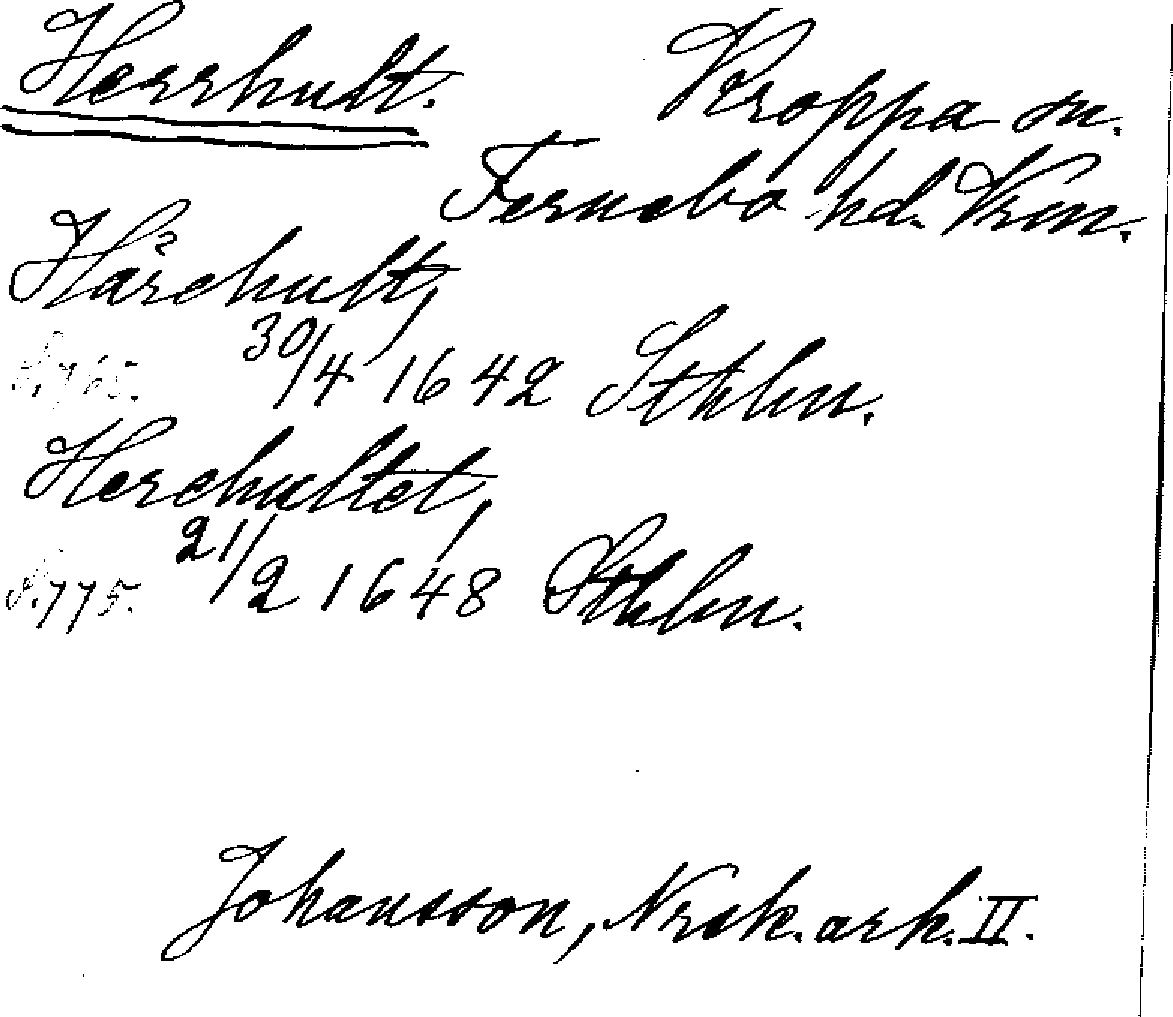 Herrhult. Kroppa sn.
Fernebo hd. Vrm.
Hårehult,
S. 765. 30/4 1642 Sthlm.
Herehultet,
S. 775. 21/2 1648 Sthlm.
Johansson, Nrsk. ark. II.